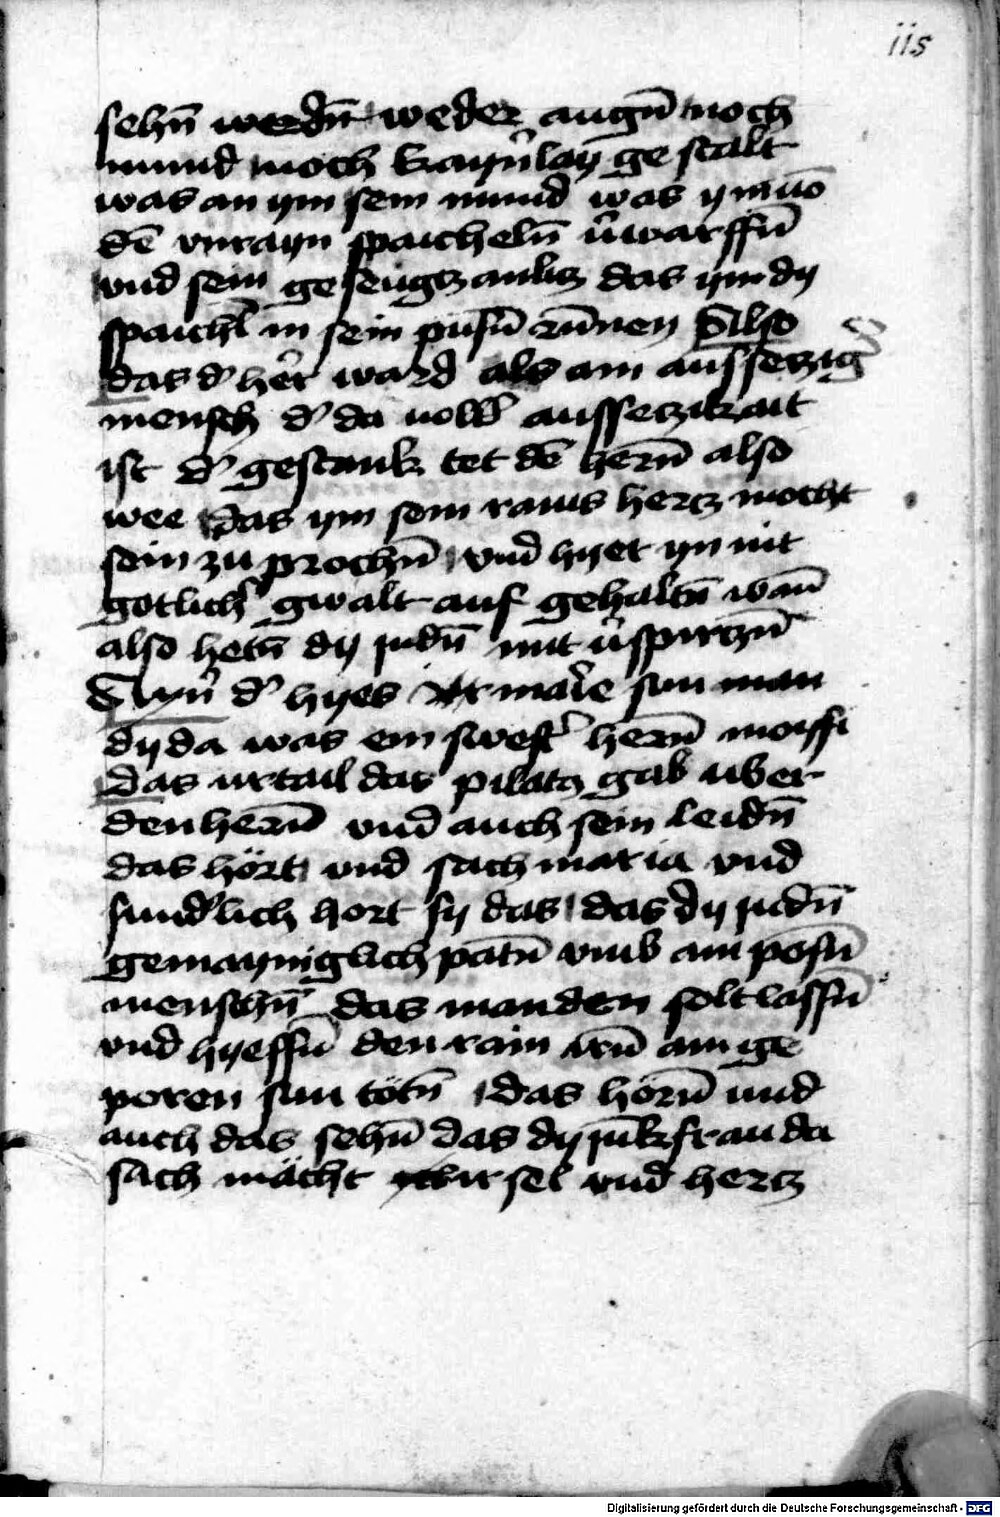 iis
sehn̄ werdn̄ weder augn̄ noch
mund noch kaynˀlay gestalt
was an ym sein mund was ym vō
dē vnrayn spaicheln̄ v̉warffn̄
vnd sein geseugtz antlitz das ym dy
spaichl in sein pusn̄ runnen Also
das dˀ her̉ ward als ain aussetzig
mensch dˀ da voller aussetzikait
ist dˀ gestank tet dē hern̄ also
wee das ym sein rains hertz mocht
sein zu prochn̄ vnd hyet yn nit
gotlichˀ gwalt auf gehaltn̄ wan̄
also hetn̄ dy judn̄ mit v̉spirtzn̄
Aynˀ dˀ hyes mar̉e sun man
dy da was ein swestˀ hern̄ moysi
das urtail das pilatz gab uber
den hern̄ vnd auch sein leidn̄
das hört vnd sach maria vnd
sundˀlich hort sy das das dy judn̄
gemayniglich patn̄ vmb ain posn̄
menschn̄ das man den solt lassn̄
vnd hyessn̄ den rain irn̄ ain ge
poren sun tötn̄ das hörn̄ und
auch das sehn̄ das dy jūkfrau da
sach mächt ir sel vnd hertz
Digitalisierung gefördert durch die Deutsche Forschungsgemeinschaft - DFG